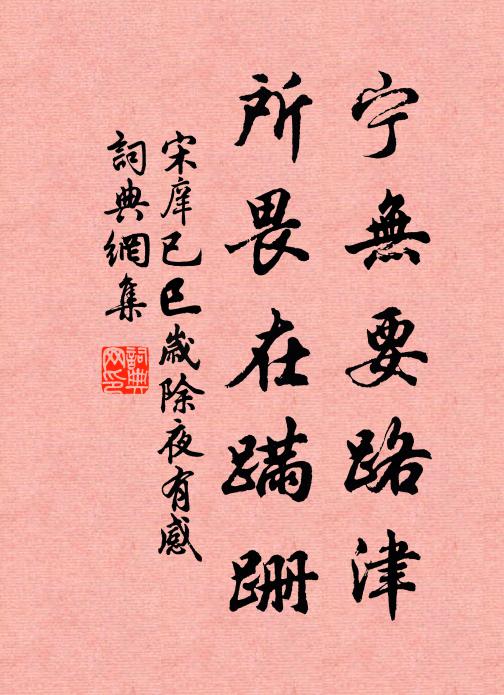 宁無要路津
所畏在蹣跚
宋庠己巳歲除夜有感
詞典網集
詞典網印